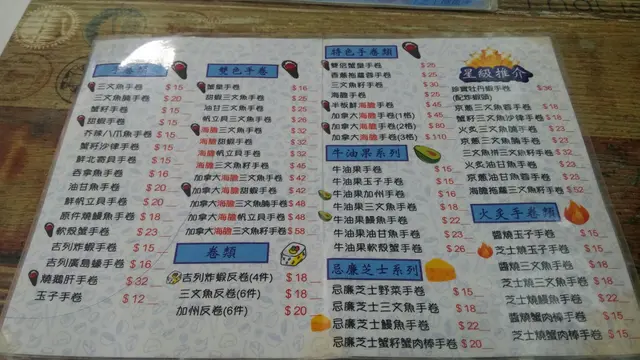 三文魚手卷 $15
三文魚腩手卷 $20
蟹籽手卷 $15
甜蝦手卷 $15
芥辣八爪魚手卷 $15
蟹籽沙律手卷 $15
鮮北寄貝手卷 $15
吞拿魚手卷 $16
油甘魚手卷 $20
鮮帆立貝手卷 $20
原件燒鰻魚手卷 $18
軟殼蟹手卷 $23
吉列炸蝦手卷 $15
吉列廣島蠔手卷 $16
燒鵝肝手卷 $32
玉子手卷 $12
雙色手卷
蟹皇手卷 $16
甜蝦三文魚手卷 $25
油甘三文魚手卷 $25
帆立貝三文魚手卷 $26
海膽三文魚手卷 $32
海膽甜蝦手卷 $32
海膽帆立貝手卷 $32
加拿大海膽三文魚手卷 $42
加拿大海膽甜蝦手卷 $42
加拿大海膽三文魚腩手卷 $48
加拿大海膽帆立貝手卷 $48
加拿大海膽三文魚籽手卷 $58
卷類
吉列炸蝦反卷(4件) $18
三文魚反卷(6件) $18
加州反卷(6件) $20
特色手卷類
雙倍蟹皇手卷 $25
香蔥拖羅蓉手卷 $25
三文魚籽手卷 $30
海膽手卷 $25
半板鮮海膽手卷 $45
加拿大海膽手卷(1格) $45
加拿大海膽手卷(2格) $80
加拿大海膽手卷(3格) $110
牛油果系列
牛油果手卷 $15
牛油果玉子手卷 $15
牛油果加州手卷 $16
牛油果三文魚手卷 $18
牛油果鰻魚手卷 $22
牛油果油甘魚手卷 $23
牛油果軟殼蟹手卷 $26
忌廉芝士系列
忌廉芝士野菜手卷 $15
忌廉芝士三文魚手卷 $18
忌廉芝士鰻魚手卷 $22
忌廉芝士蟹籽蟹肉棒手卷 $20
星級推介
珍寶牡丹蝦手卷 $36
(配炸蝦頭)
京蔥三文魚蓉手卷 $18
蟹籽三文魚沙律手卷 $18
火炙三文魚腩手卷 $23
京蔥三文魚腩手卷 $23
三文魚拼三文魚籽手卷 $32
火炙油甘魚手卷 $23
京蔥油甘魚蓉手卷 $23
海膽拖羅三文魚籽手卷 $52
火炙手卷類
醬燒玉子手卷 $15
芝士燒玉子手卷 $15
醬燒三文魚手卷 $18
芝士燒三文魚手卷 $18
芝士燒鰻魚手卷 $22
醬燒蟹肉棒手卷 $15
芝士燒蟹肉棒手卷 $15